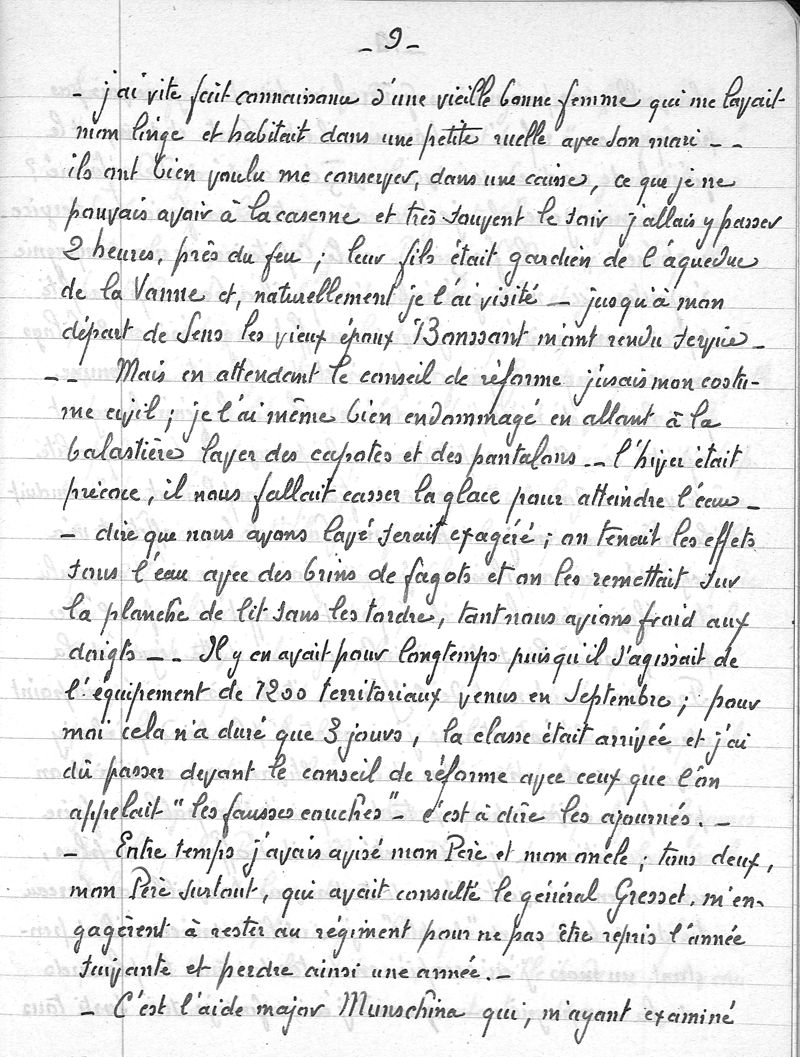 - 9 -
- j'ai vite fait connaissance d'une vieille bonne femme qui me lavait
mon linge et habitait dans une petite ruelle avec son mari - -
ils ont bien voulu me conserver, dans une caisse, ce que je ne
pouvais avoir à la caserne et très souvent le soir j'allais y passer
2 heures, près du feu ; leur fils était gardien de l'aqueduc
de la Vanne et, naturellement je l'ai visité - jusqu'à mon
départ de Sens les vieux époux Bonssant m'ont rendu service -
- - Mais en attendant le conseil de réforme j'usais mon costu-
me civil ; je l'ai même bien endommagé en allant à la
balastière laver des capotes et des pantalons - - l'hiver était
précoce, il nous fallait casser la glace pour atteindre l'eau -
- dire que nous avons lavé serait exagéré ; on tenait les effets
sous l'eau avec des brins de fagots et on les remettait sur
la planche de lit sans les tordre, tant nous avions froid aux
doigts - - Il y en avait pour longtemps puisqu'il s'agissait de
l'équipement de 1200 territoriaux venus en Septembre ; pour
moi cela n'a duré que 3 jours, la classe était arrivée et j'ai
dû passer devant le conseil de réforme avec ceux que l'on
appelait "les fausses couches" - c'est à dire les ajournés. -
- Entre temps j'avais avisé mon Père et mon oncle ; tous deux,
mon Père surtout, qui avait consulté le général Gresset, m'en-
gagèrent à rester au régiment pour ne pas être repris l'année
suivante et perdre ainsi une année. -
- C'est l'aide major Munschina qui, m'ayant examiné